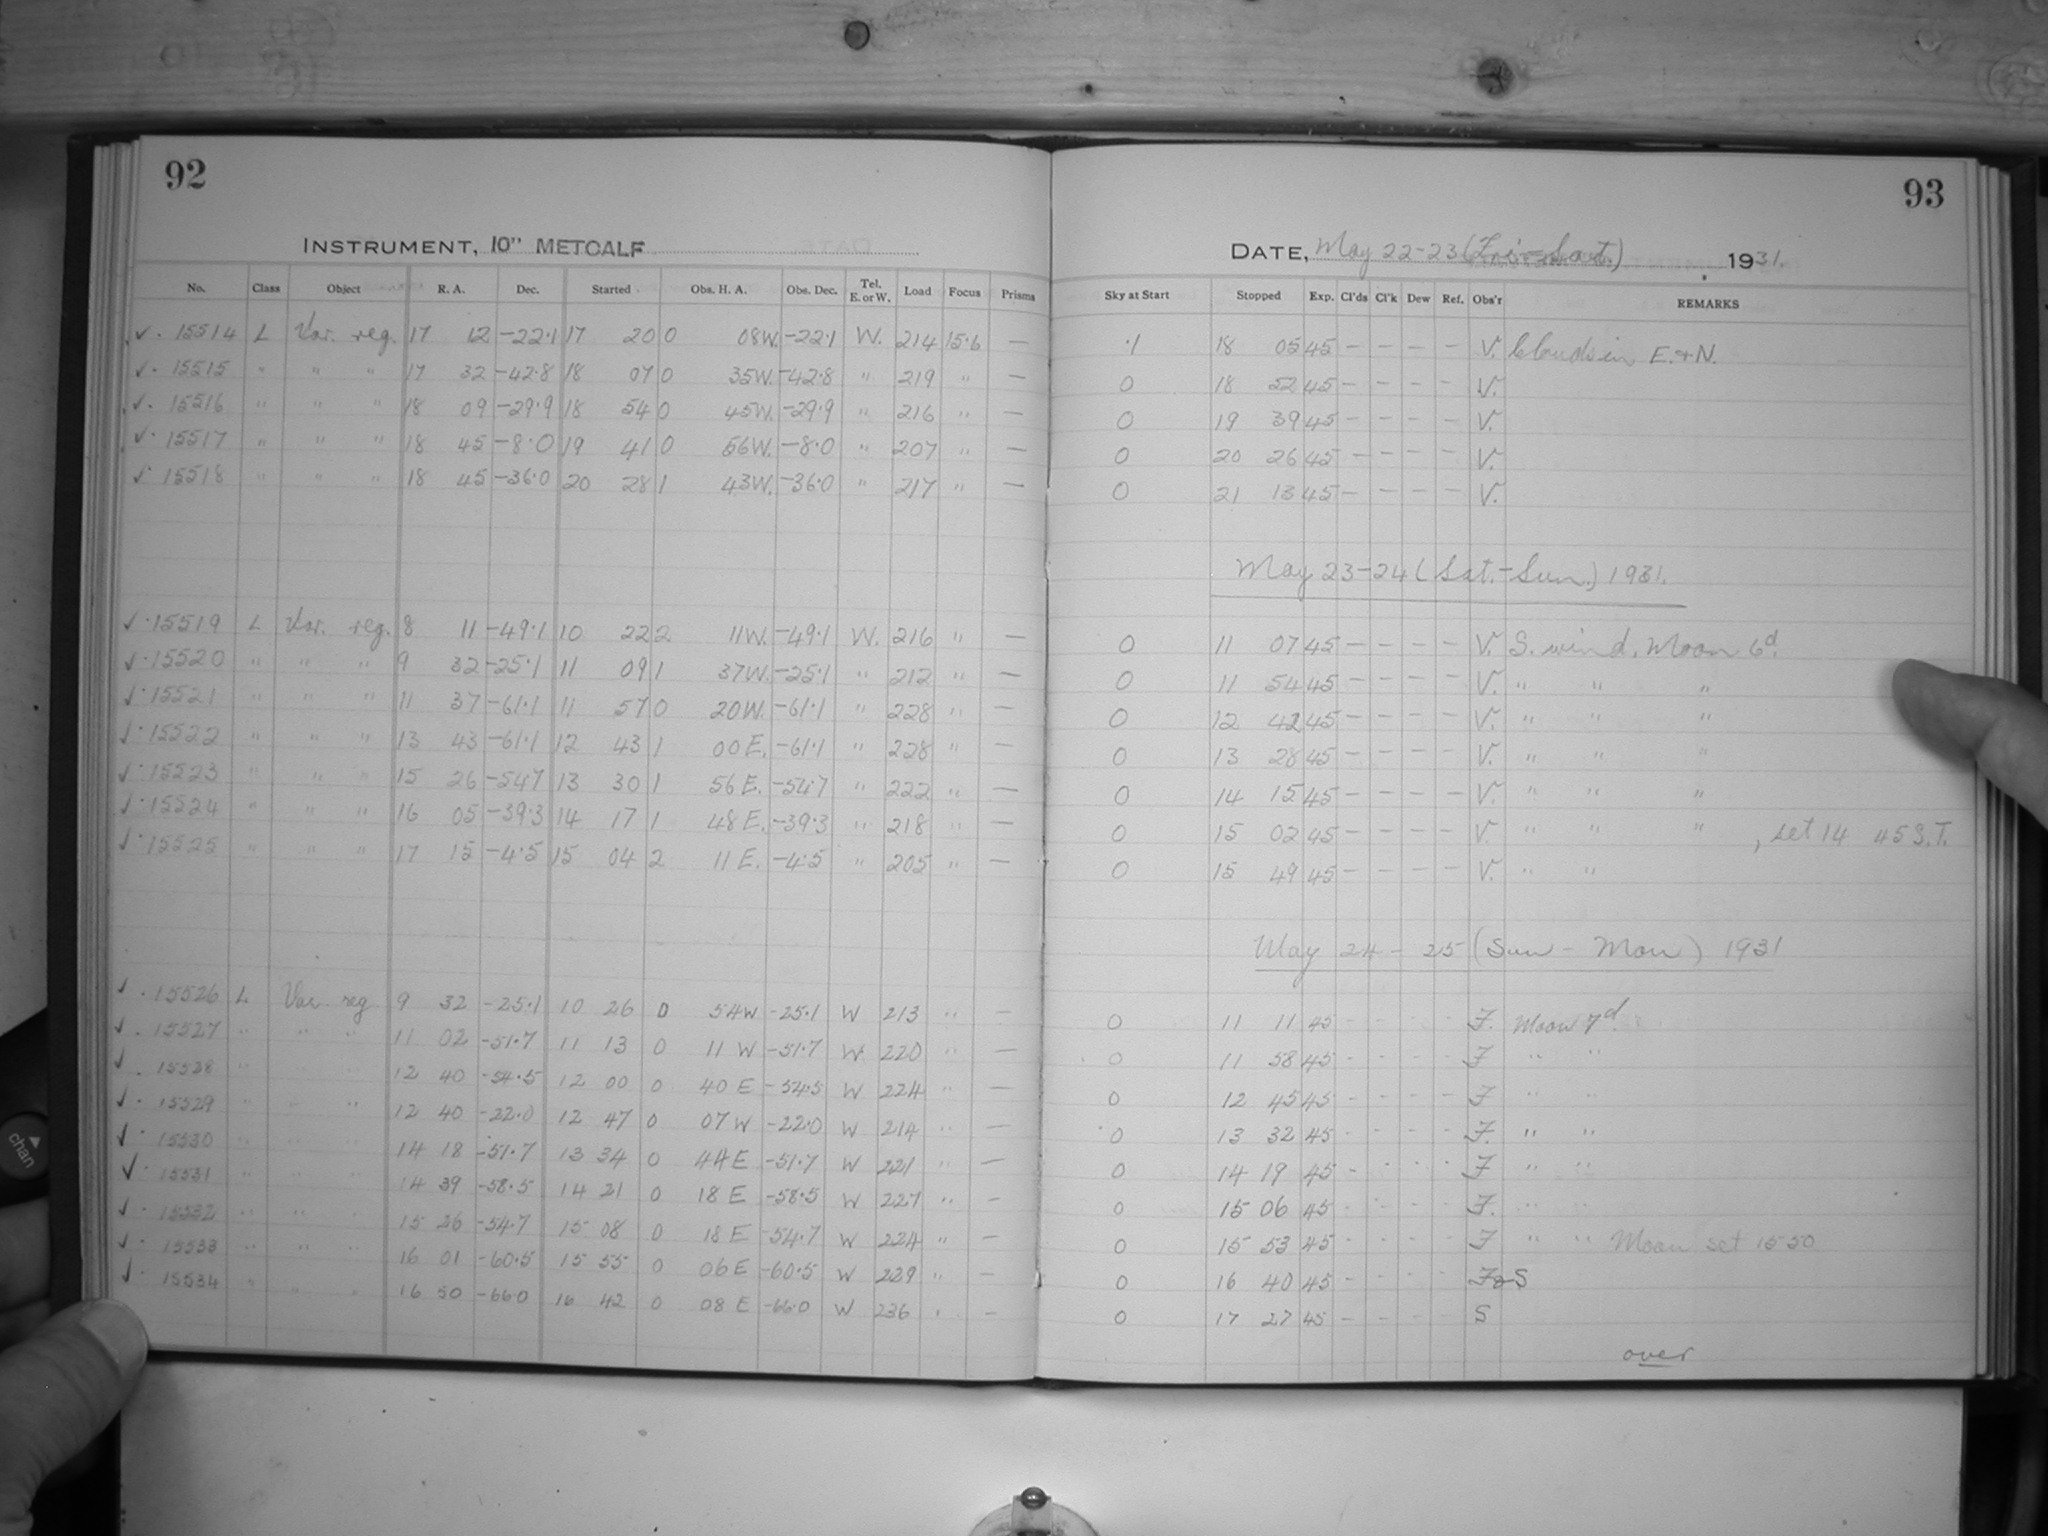 92
INSTRUMENT, 10" METCALF
No. Class Object R. A. Dec. Started Obs. H. A. Obs. Dec. Tel. E. or W. Load Focus Prisms
✓. 15514 L Var. reg. 17 12 -22.1 17 20 0 08W. -22.1 W. 214 15.6 —
✓. 15515 " " " 17 32 -42.8 18 07 0 35W. -42.8 " 219 " —
✓. 15516 " " " 18 09 -29.9 18 54 0 45W. -29.9 " 216 " —
✓. 15517 " " " 18 45 -8.0 19 41 0 56W. -8.0 " 207 " —
✓. 15518 " " " 18 45 -36.0 20 28 1 43W. -36.0 " 217 " —
✓. 15519 L Var. reg. 8 11 -49.1 10 22 2 11W. -49.1 W. 216 " —
✓. 15520 " " " 9 32 -25.1 11 09 1 37W. -25.1 " 212 " —
✓. 15521 " " " 11 37 -61.1 11 57 0 20W. -61.1 " 228 " —
✓. 15522 " " " 13 43 -61.1 12 43 1 00E. -61.1 " 228 " —
✓. 15523 " " " 15 26 -54.7 13 30 1 56E. -54.7 " 222 " —
✓. 15524 " " " 16 05 -39.3 14 17 1 48E. -39.3 " 218 " —
✓. 15525 " " " 17 15 -4.5 15 04 2 11E. -4.5 " 205 " —
✓. 15526 L Var reg 9 32 -25.1 10 26 0 54W -25.1 W 213 " —
✓. 15527 " " " 11 02 -51.7 11 13 0 11W -51.7 W 220 " —
✓. 15528 " " " 12 40 -54.5 12 00 0 40E -54.5 W 224 " —
✓. 15529 " " " 12 40 -22.0 12 47 0 07W -22.0 W 214 " —
✓. 15530 " " " 14 18 -51.7 13 34 0 44E -51.7 W 221 " —
✓. 15531 " " " 14 39 -58.5 14 21 0 18E -58.5 W 227 " —
✓. 15532 " " " 15 26 -54.7 15 08 0 18E -54.7 W 224 " —
✓. 15533 " " " 16 01 -60.5 15 55 0 06E -60.5 W 229 " —
✓. 15534 " " " 16 50 -66.0 16 42 0 08E -66.0 W 236 " —
93
DATE, May 22-23 (Fri-Sat.) 1931.
Sky at Start Stopped Exp. Cl'ds Cl'k Dew Ref. Obs'r REMARKS
.1 18 05 45 — — — — V. Clouds in E. & N.
0 18 52 45 — — — — V.
0 19 39 45 — — — — V.
0 20 26 45 — — — — V.
0 21 13 45 — — — — V.
May 23-24 (Sat.-Sun.) 1931.
0 11 07 45 — — — — V. S. wind. Moon 6d.
0 11 54 45 — — — — V. " " "
0 12 42 45 — — — — V. " " "
0 13 28 45 — — — — V. " " "
0 14 15 45 — — — — V. " " "
0 15 02 45 — — — — V. " " " , set 14 45 S.T.
0 15 49 45 — — — — V. " "
May 24-25 (Sun-Mon) 1931
0 11 11 45 - - - - F. Moon 7d.
0 11 58 45 - - - - F " "
0 12 45 45 - - - - F " "
0 13 32 45 - - - - F. " "
0 14 19 45 - - - - F " "
0 15 06 45 - - - - F. " "
0 15 53 45 - - - - F " " Moon set 15 50
0 16 40 45 - - - - F & S
0 17 27 45 - - - - S
over
chan